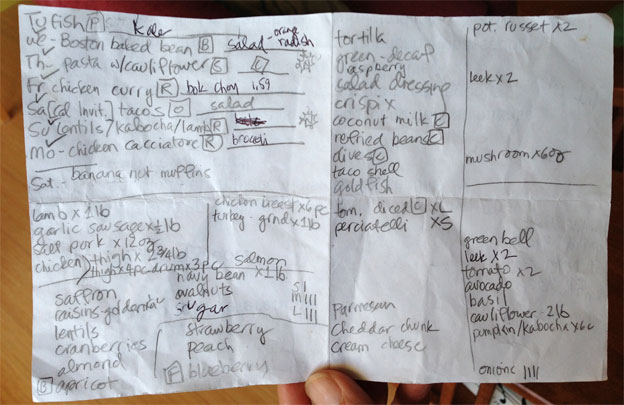 Tu fish P Kale
We - Boston baked bean B salad - orange radish
Th - pasta w/cauliflower S
Fr chicken curry R bok choy 1.59
Sa (Cd Invit.) tacos O salad
Su lentils/kabocha/lamb R
Mo - chicken cacciatore R brocoli
Sat. - banana nut muffins
lamb x 1 lb
garlic sausage x ½ lb
salt pork x 12 oz
chicken thigh x 2 3/4 lb
thigh x 4 pc drum x 3 pc
chicken breast x 6 pc
turkey - grnd x 1 lb
salmon
navy bean x 1 lb
walnuts
sugar
S II
M IIII
L III
saffron
raisins - golden
lentils
cranberries
almond
B apricot
strawberry
peach
F blueberry
tortilla
green - decaf
raspberry
salad dressing
crispix
coconut milk C
refried beans C
olives C
taco shell
goldfish
tom. diced C x L
perciatelli x S
parmesan
cheddar chunk
cream cheese
pot. russet x 2
leek x 2
mushroom x 6 oz
green bell
leek x 2
tomato x 2
avocado
basil
cauliflower 2 lb
pumpkin/kabocha x 6 c
onions IIII